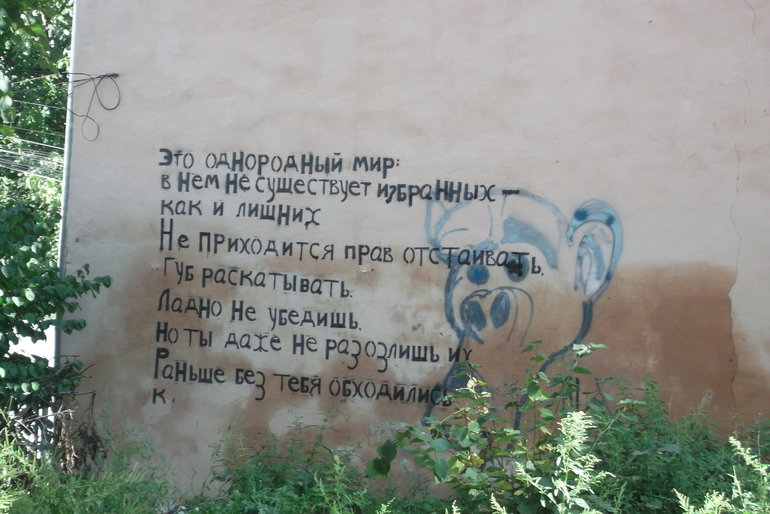 Это однородный мир:
в нем не существует избранных —
как и лишних
Не приходится прав отстаивать,
Губ раскатывать.
Ладно не убедишь,
Но ты даже не разозлишь их
Раньше без тебя обходились
к